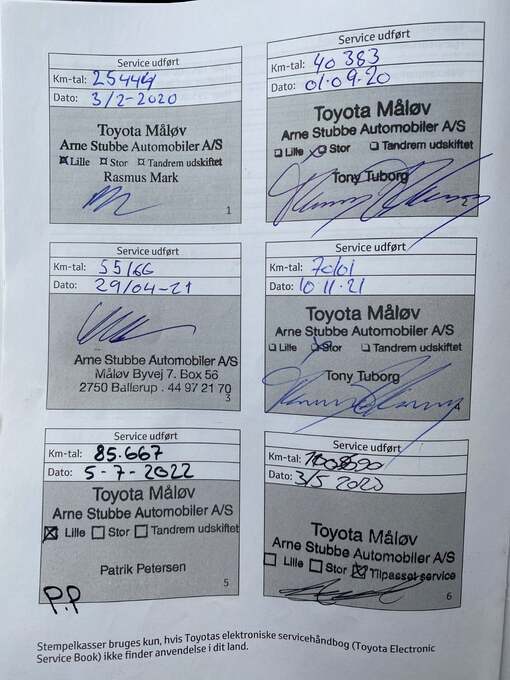 Service udført
Km-tal: 25444
Dato: 3/2-2020
Toyota Måløv
Arne Stubbe Automobiler A/S
Lille Stor Tandrem udskiftet
Rasmus Mark
1
Service udført
Km-tal: 40 383
Dato: 01.09.20
Toyota Måløv
Arne Stubbe Automobiler A/S
Lille Stor Tandrem udskiftet
Tony Tuborg
2
Service udført
Km-tal: 55166
Dato: 29/04-21
Arne Stubbe Automobiler A/S
Måløv Byvej 7. Box 56
2750 Ballerup . 44 97 21 70
3
Service udført
Km-tal:
Dato: 10.11.21
Toyota Måløv
Arne Stubbe Automobiler A/S
Lille Stor Tandrem udskiftet
Tony Tuborg
4
Service udført
Km-tal: 85.667
Dato: 5-7-2022
Toyota Måløv
Arne Stubbe Automobiler A/S
Lille Stor Tandrem udskiftet
Patrik Petersen
5
P.P
Service udført
Km-tal:
Dato: 3/5 2023
Toyota Måløv
Arne Stubbe Automobiler A/S
Lille Stor Tilpasset service
6
Stempelkasser bruges kun, hvis Toyotas elektroniske servicehåndbog (Toyota Electronic
Service Book) ikke finder anvendelse i dit land.